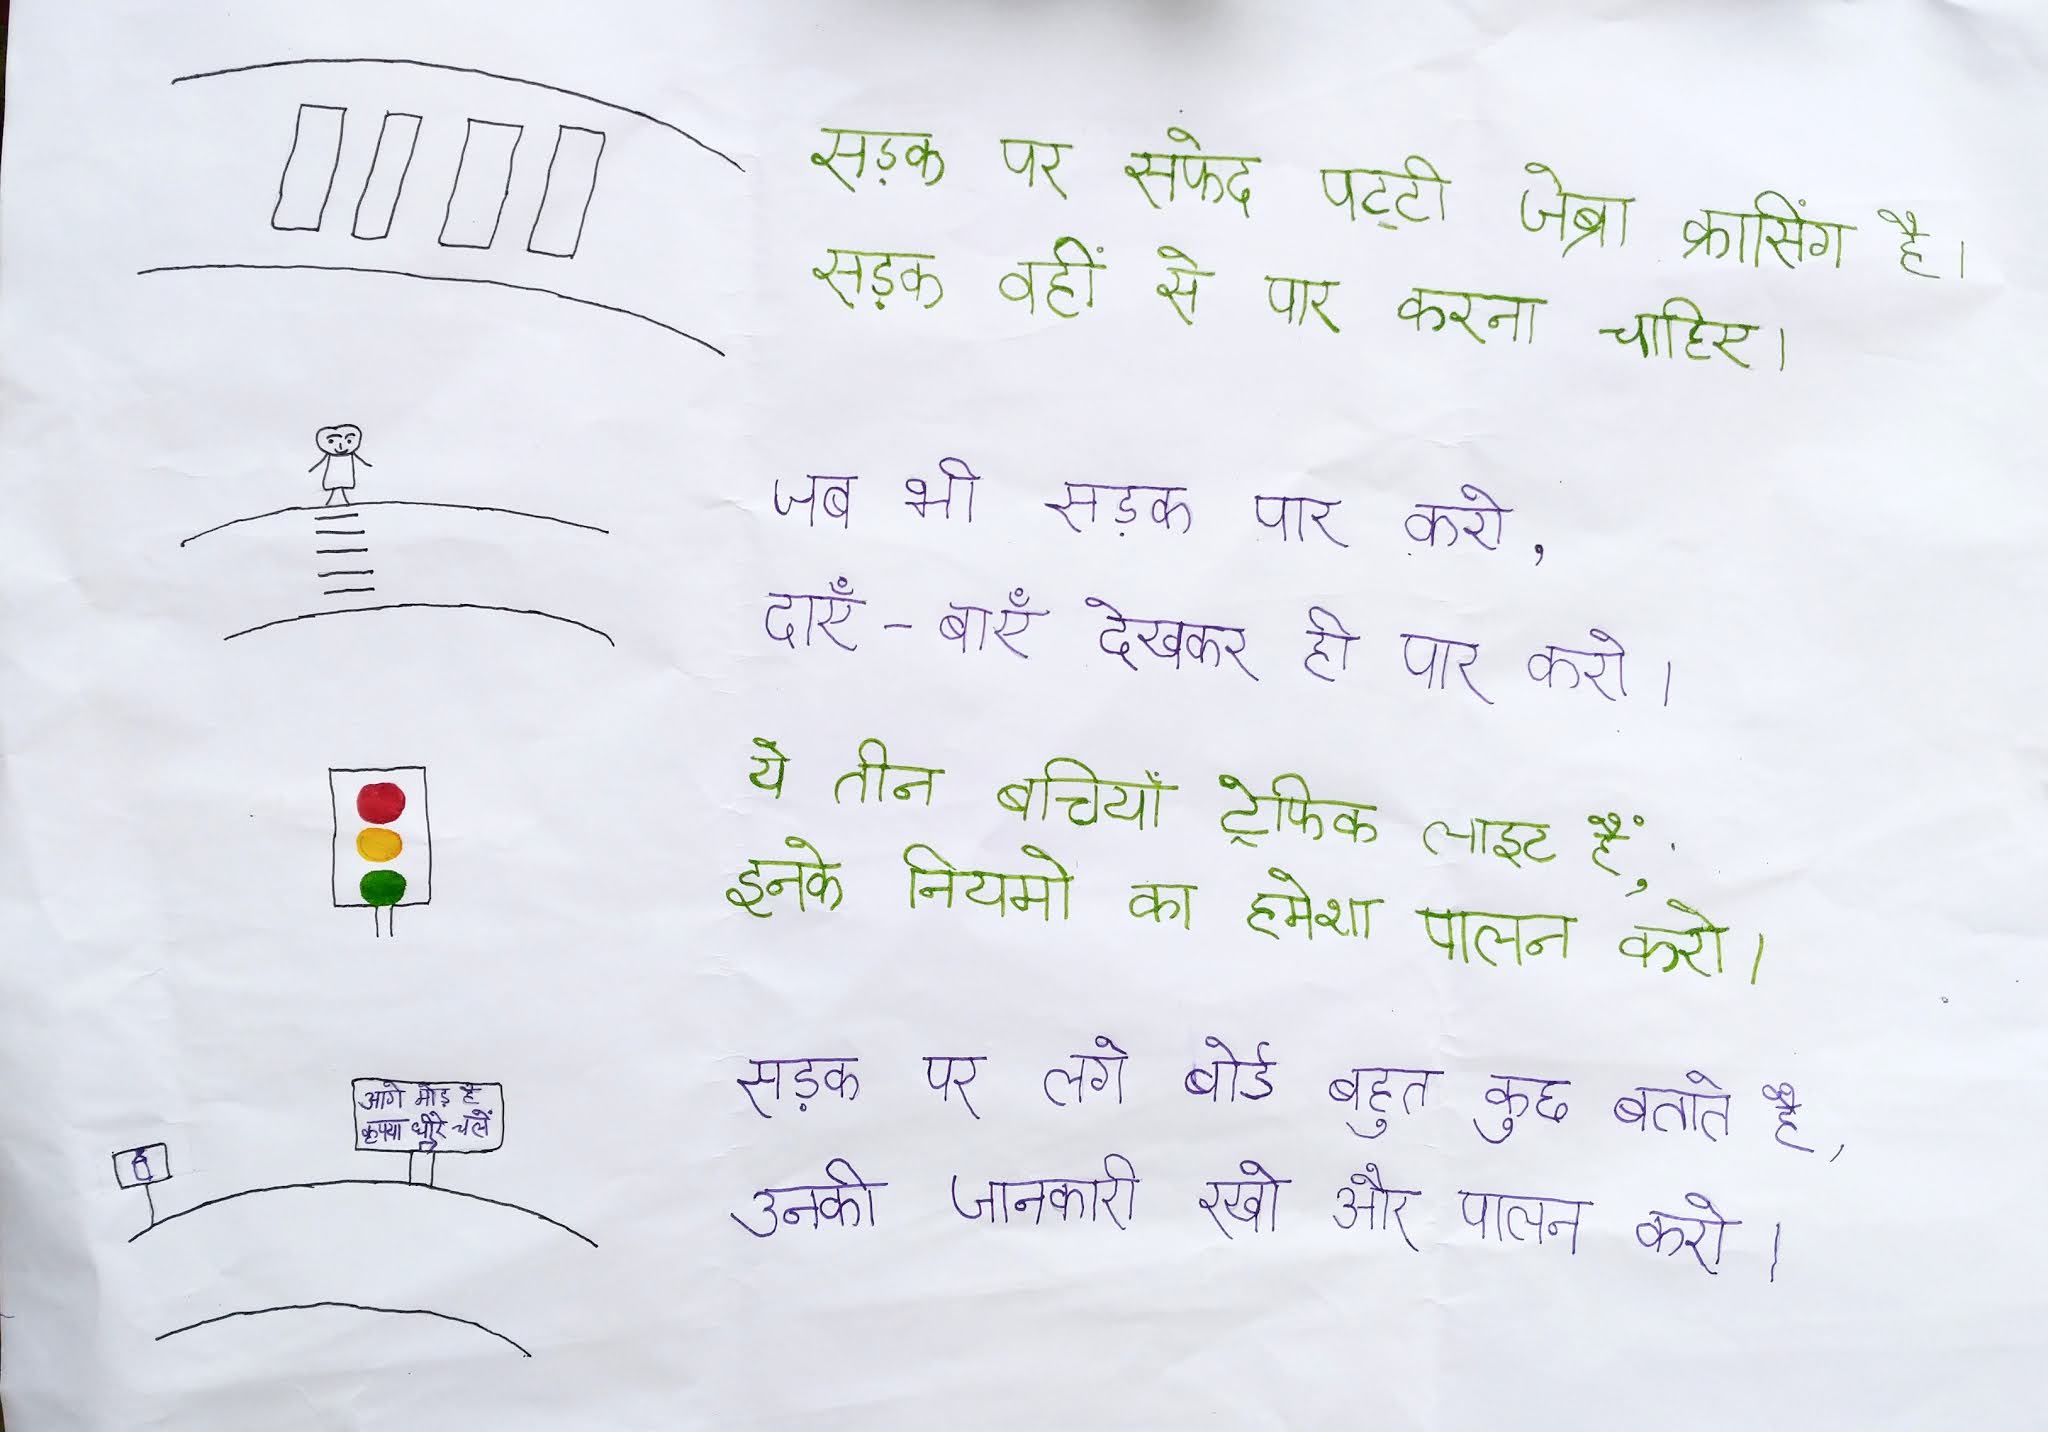 सड़क पर सफेद पट्टी जेब्रा क्रासिंग है।
सड़क वहीं से पार करना चाहिए।
जब भी सड़क पार करो,
दाएँ - बाएँ देखकर ही पार करो।
ये तीन बत्तियाँ ट्रेफिक लाइट हैं,
इनके नियमों का हमेशा पालन करो।
आगे मोड़ है
कृपया धीरे चलें
सड़क पर लगे बोर्ड बहुत कुछ बताते है,
उनकी जानकारी रखो और पालन करो।